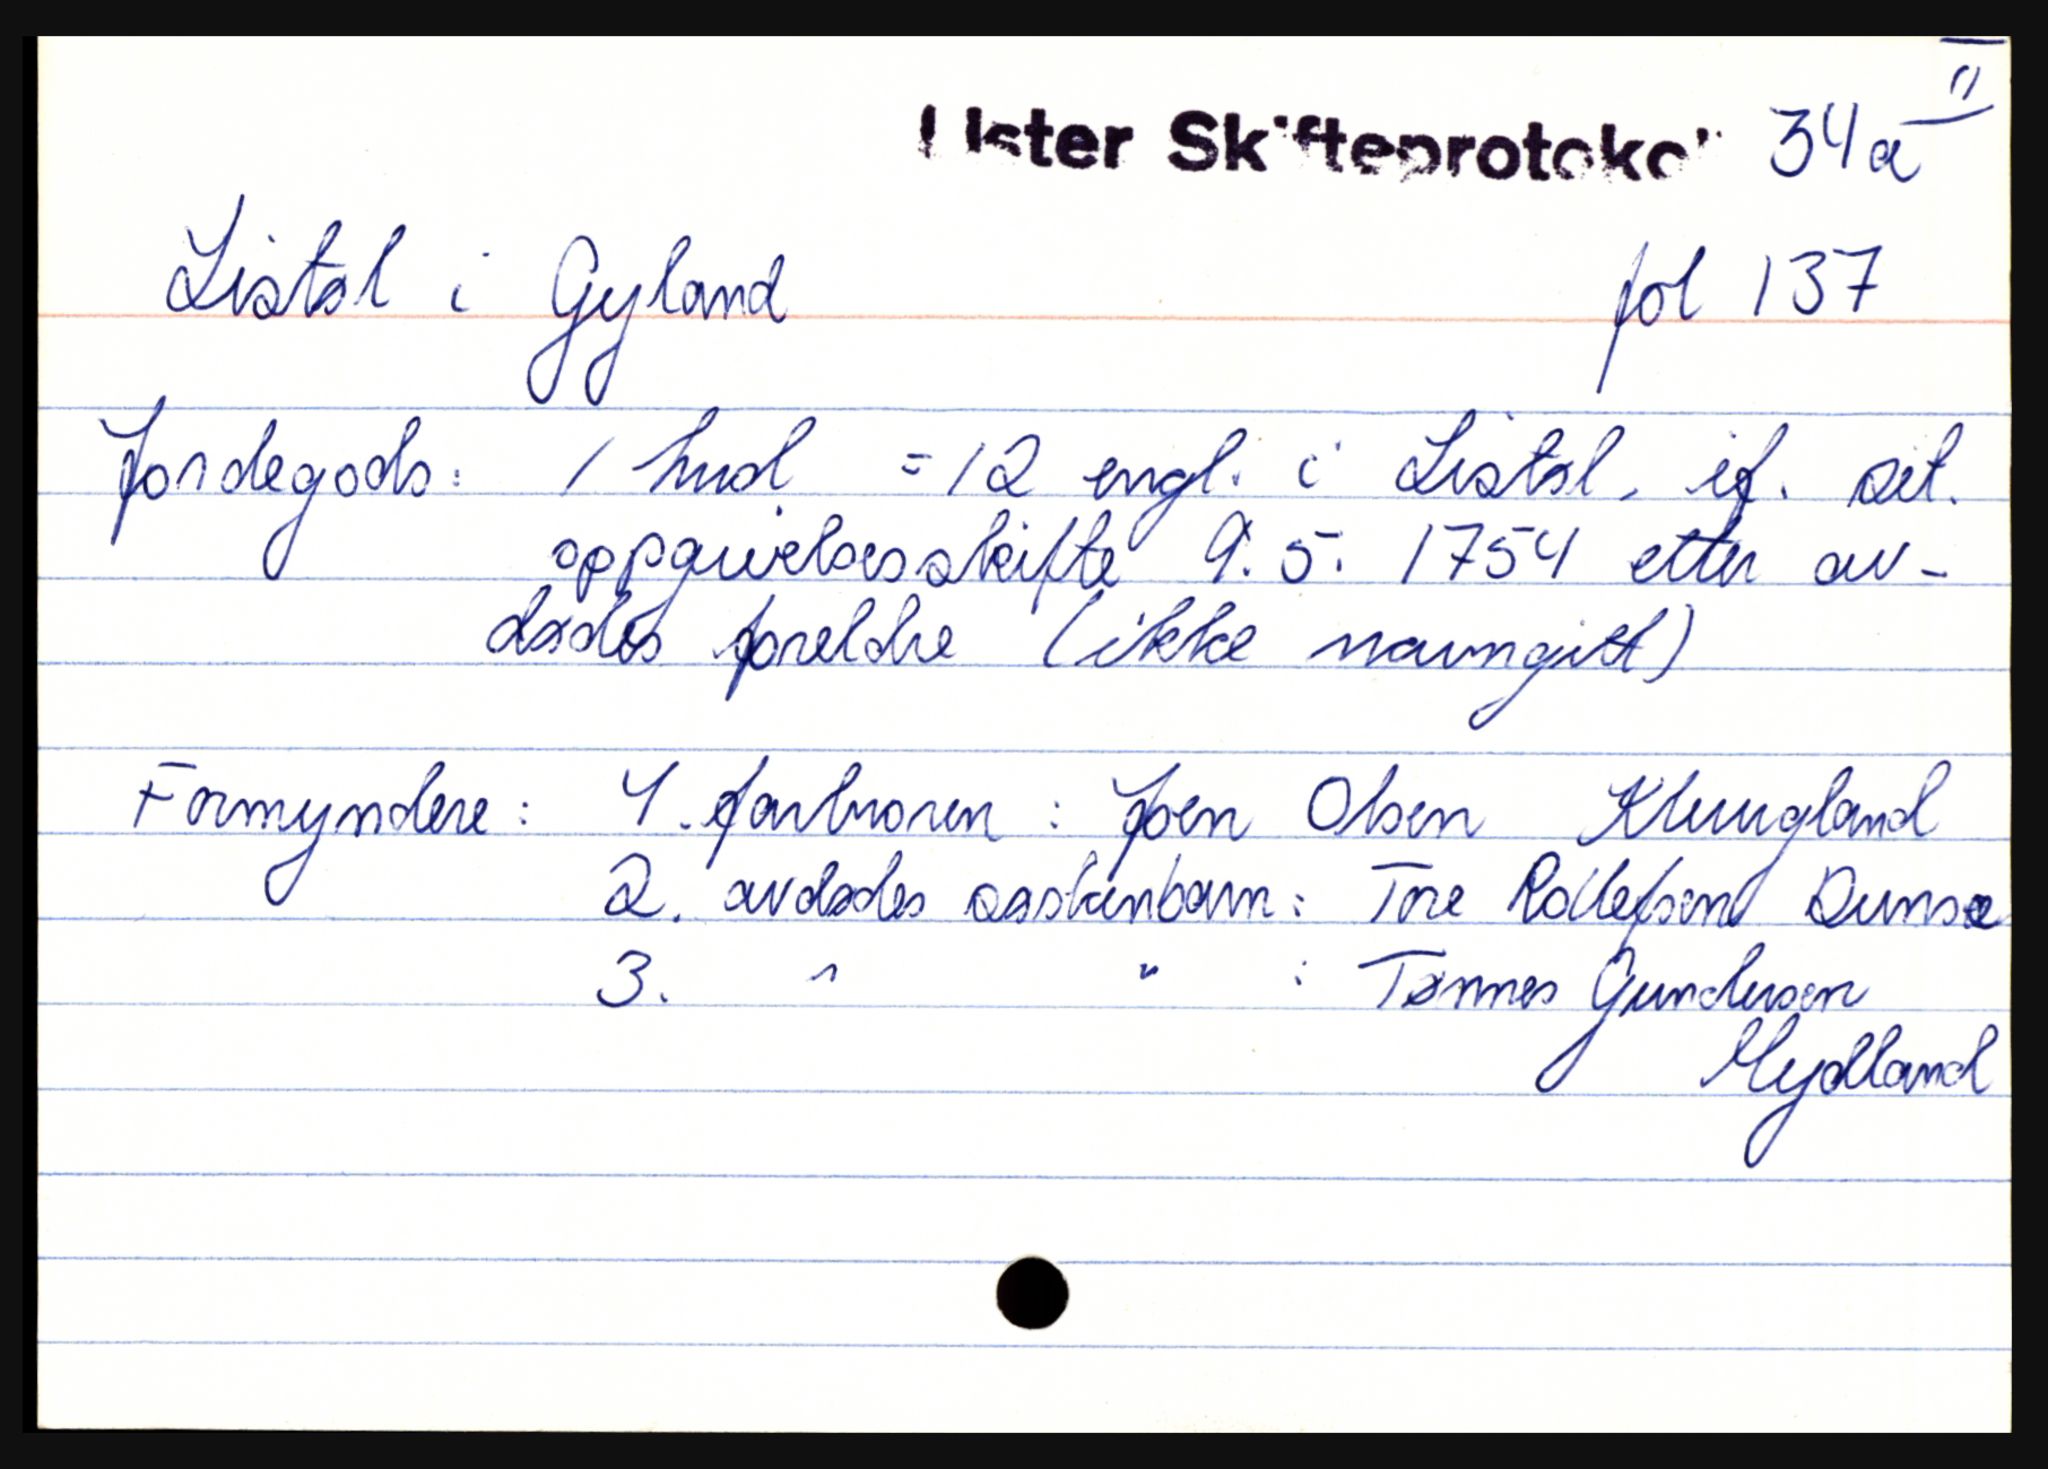 II
Lister Skifteprotokoll 34a
Listøl i Gyland fol 137
Jordegods: 1 hud = 12 engl. i Listøl, if. sit.
oppgivelsesskifte 9.5.1754 etter av-
dødes foreldre (ikke navngitt)
Formyndere: 1. farbroren: Joen Olsen Klungland
2. avdødes søskenbarn: Tore Rollefsen Dunsæ
3. " " : Tønnes Gundersen
Mydland